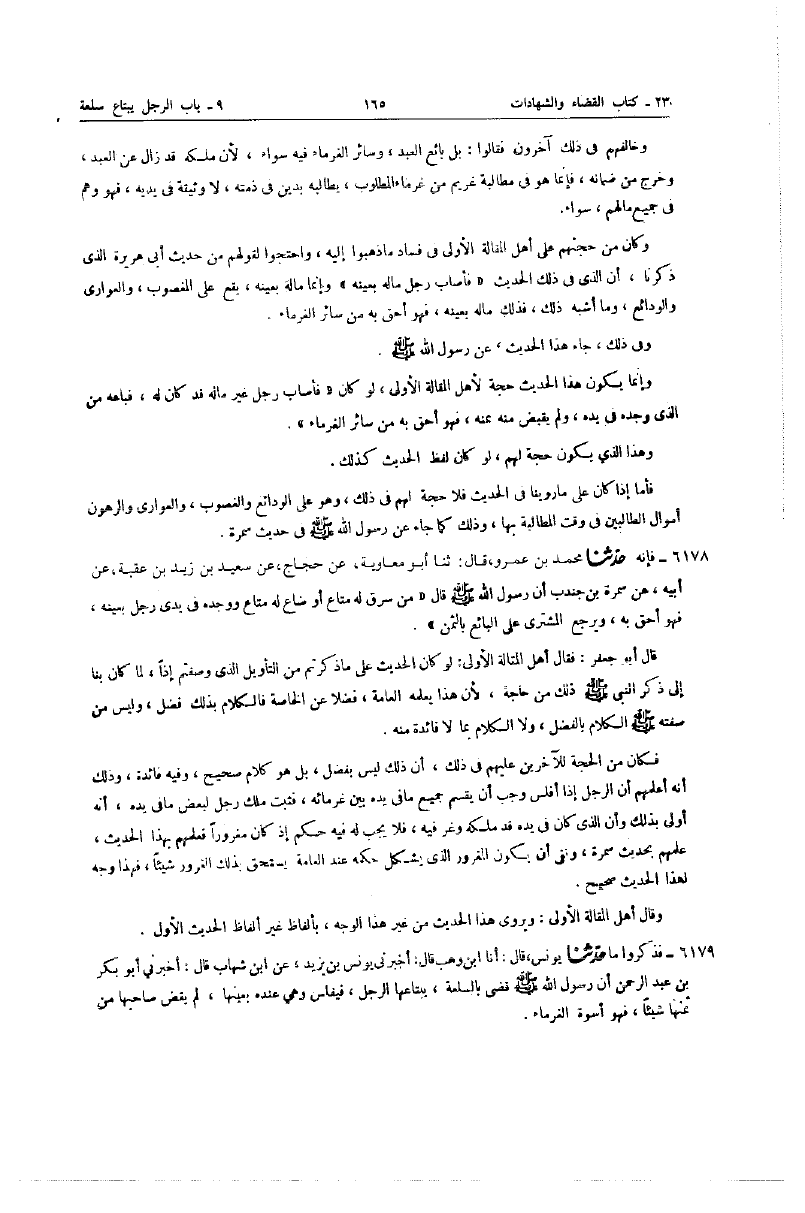 ٢٣ - كتاب القضاء والشهادات ١٦٥ ٩ - باب الرجل يبتاع سلعة
وخالفهم فى ذلك آخرون فقالوا : بل بائع العبد ، وسائر الغرماء فيه سواء ، لأن ملكه قد زال عن العبد ،
وخرج من ضمانه ، فإنما هو فى مطالبة غريم من غرماء المطلوب ، يطالبه بدين فى ذمته ، لا وثيقة فى يديه ، فهو وهم
فى جميع مالهم ، سواء.
وكان من حجتهم على أهل المقالة الأولى فى فساد ماذهبوا إليه ، واحتجوا لقولهم من حديث أبى هريرة الذى
ذكرنا ، أن الذى فى ذلك الحديث « فأصاب رجل ماله بعينه » وإنما ماله بعينه ، يقع على المغصوب ، والعوارى
والودائع ، وما أشبه ذلك ، فذلك ماله بعينه ، فهو أحق به من سائر الغرماء .
وفى ذلك ، جاء هذا الحديث ، عن رسول الله ﷺ .
وإنما يكون هذا الحديث حجة لأهل المقالة الأولى ، لو كان « فأصاب رجل غير ماله قد كان له ، فباعه من
الذى وجده فى يده ، ولم يقبض منه ثمنه ، فهو أحق به من سائر الغرماء » .
وهذا الذي يكون حجة لهم ، لو كان لفظ الحديث كذلك .
فأما إذا كان على ماروينا فى الحديث فلا حجة لهم فى ذلك ، وهو على الودائع والغصوب ، والعوارى والرهون
أموال الطالبين فى وقت المطالبة بها ، وذلك كما جاء عن رسول الله ﷺ فى حديث سمرة .
٦١٧٨ - فإنه حدثنا محمد بن عمرو،قال: ثنا أبو معاوية، عن حجاج،عن سعيد بن زيد بن عقبة،عن
أبيه ، عن سمرة بن جندب أن رسول الله ﷺ قال « من سرق له متاع أو ضاع له متاع ووجده فى يدى رجل بعينه ،
فهو أحق به ، ويرجع المشترى على البائع بالثمن » .
قال أبو جعفر : فقال أهل المقالة الأولى: لو كان الحديث على ماذكرتم من التأويل الذى وصفتم إذاً ، لما كان بنا
إلى ذكر النبى ﷺ ذلك من حاجة ، لأن هذا يعلمه العامة ، فضلا عن الخاصة فالكلام بذلك فضل ، وليس من
صفته ﷺ الكلام بالفضل ، ولا الكلام بما لا فائدة منه .
فكان من الحجة للآخرين عليهم فى ذلك ، أن ذلك ليس بفضل ، بل هو كلام صحيح ، وفيه فائدة ، وذلك
أنه أعلمهم أن الرجل إذا أفلس وجب أن يقسم جميع مافى يده بين غرمائه ، فثبت ملك رجل لبعض مافى يده ، أنه
أولى بذلك وأن الذى كان فى يده قد ملكه وغر فيه ، فلا يجب له فيه حكم إذ كان مغروراً فعلمهم بهذا الحديث ،
علمهم بحديث سمرة ، ونفى أن يكون الغرور الذى يشكل حكمه عند العامة يستحق بذلك الغرور شيئاً ، فهذا وجه
لهذا الحديث صحيح .
وقال أهل المقالة الأولى : ويروى هذا الحديث من غير هذا الوجه ، بألفاظ غير ألفاظ الحديث الأول .
٦١٧٩ - فذكروا ما حدثنا يونس،قال : أنا ابن وهب قال: أخبرنى يونس بن يزيد ، عن ابن شهاب قال : أخبرني أبو بكر
بن عبد الرحمن أن رسول الله ﷺ قضى بالسلعة ، يبتاعها الرجل ، فيفلس وهي عنده بعينها ، لم يقض صاحبها من
ثمنها شيئاً ، فهو أسوة الغرماء .